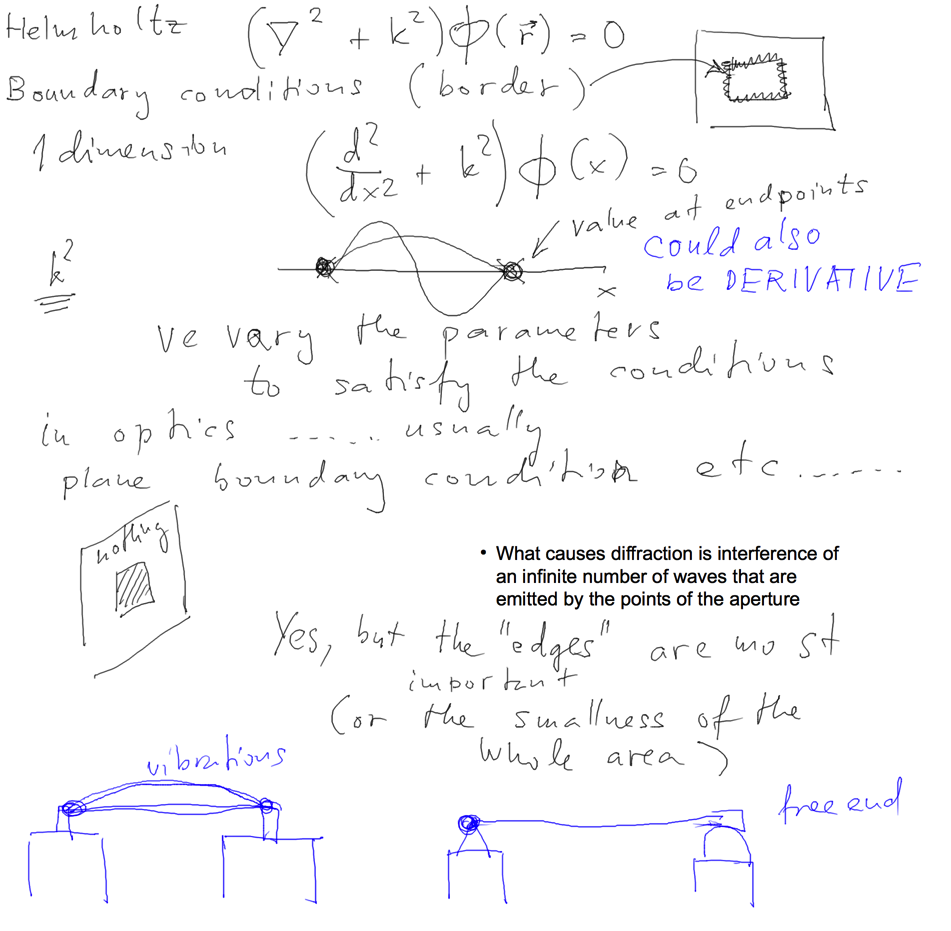 Helmholtz (∇² + k²)ϕ(r⃗) = 0
Boundary conditions (border)
1 dimension (d²/dx2 + k²)ϕ(x) = 0
value at endpoints
could also
be DERIVATIVE
k²
x
ve vary the parameters
to satisfy the conditions
in optics ...... usually
plane boundary condition etc.......
nothing
• What causes diffraction is interference of
an infinite number of waves that are
emitted by the points of the aperture
Yes, but the "edges" are most
important
(or the smallness of the
whole area)
vibrations
free end